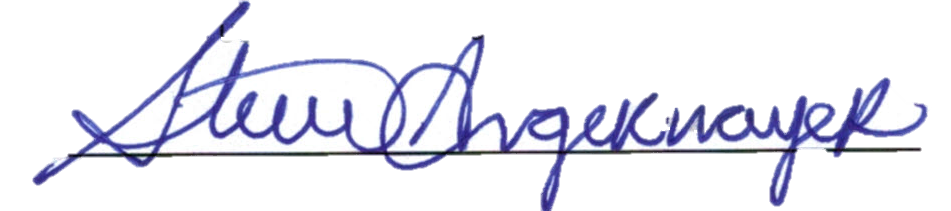 Steve Angermayer